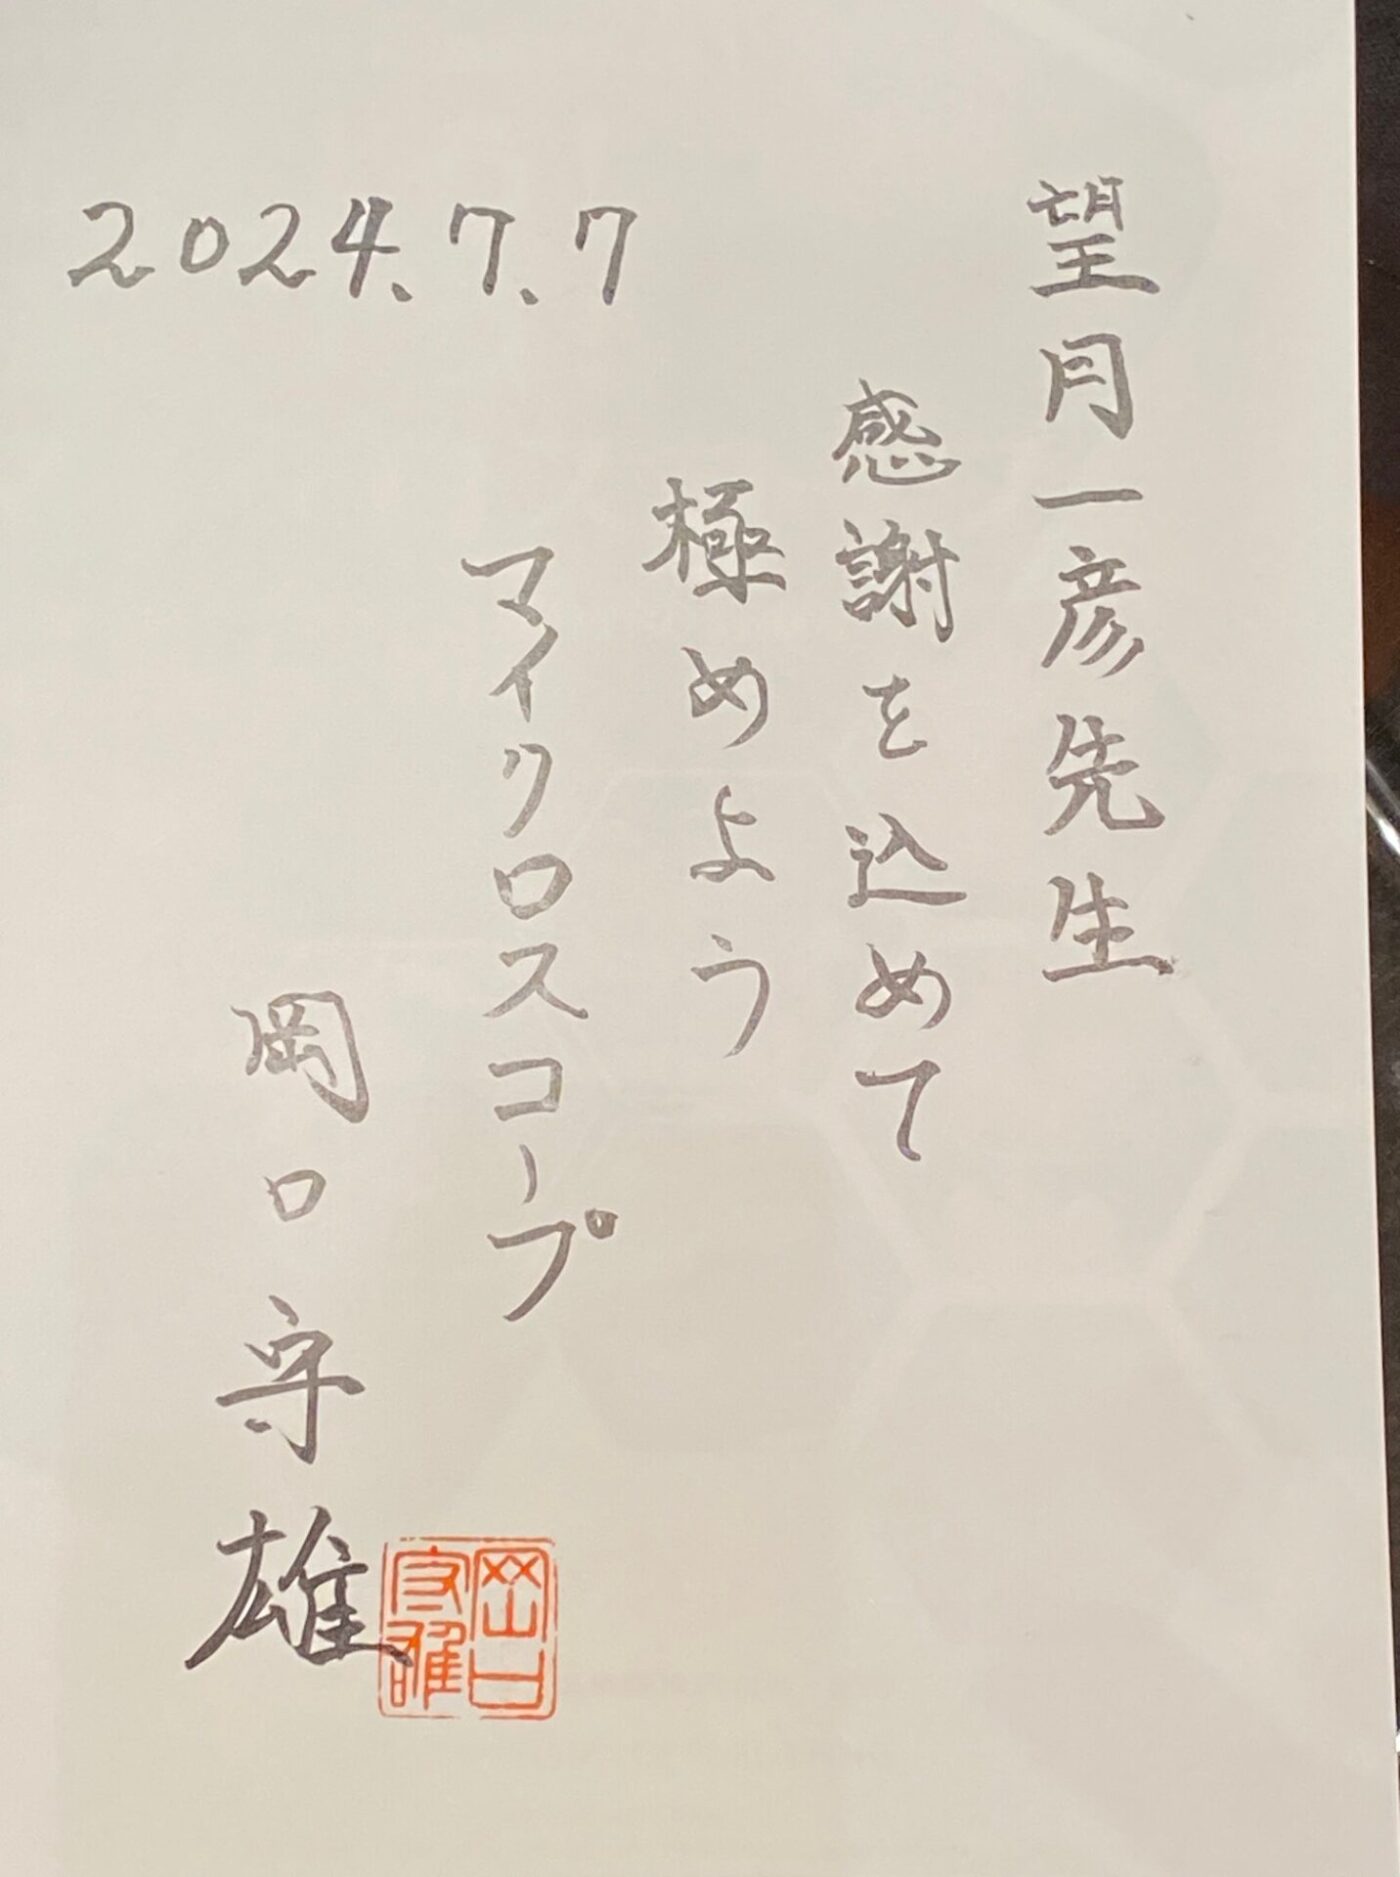 望月一彦先生
感謝を込めて
極めよう
マイクロスコープ
2024.7.7
岡口守雄
岡口
守雄